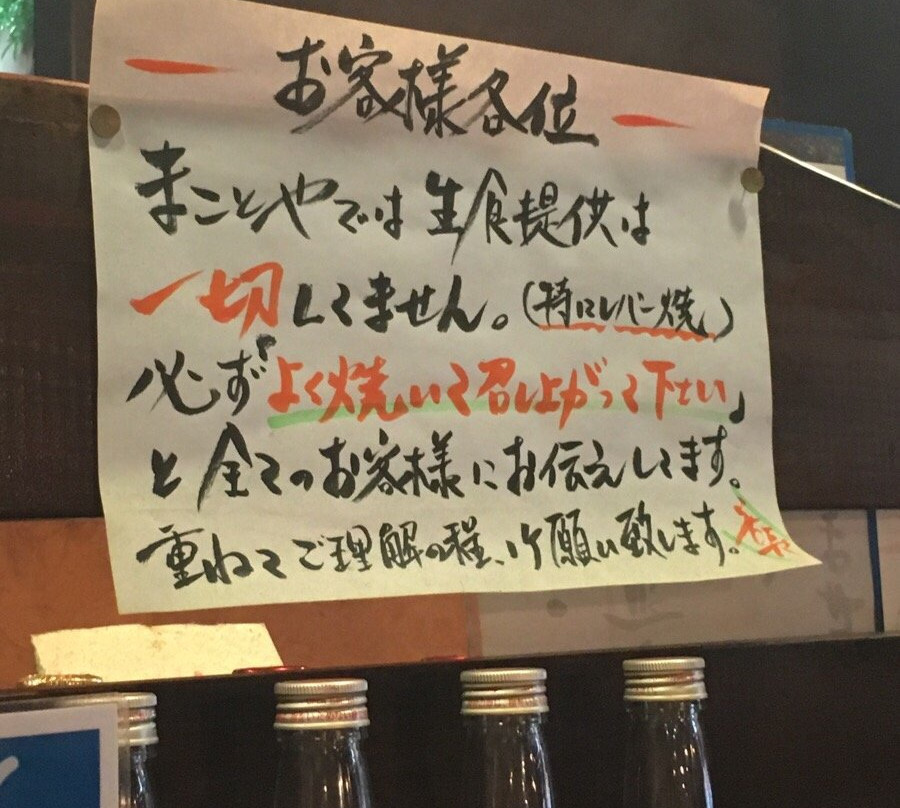 お客様各位
まことやでは生食提供は
一切してません。(特にレバー焼)
必ず「よく焼いて召し上がって下さい」
と全てのお客様にお伝えしてます。
重ねてご理解の程、お願い致します。